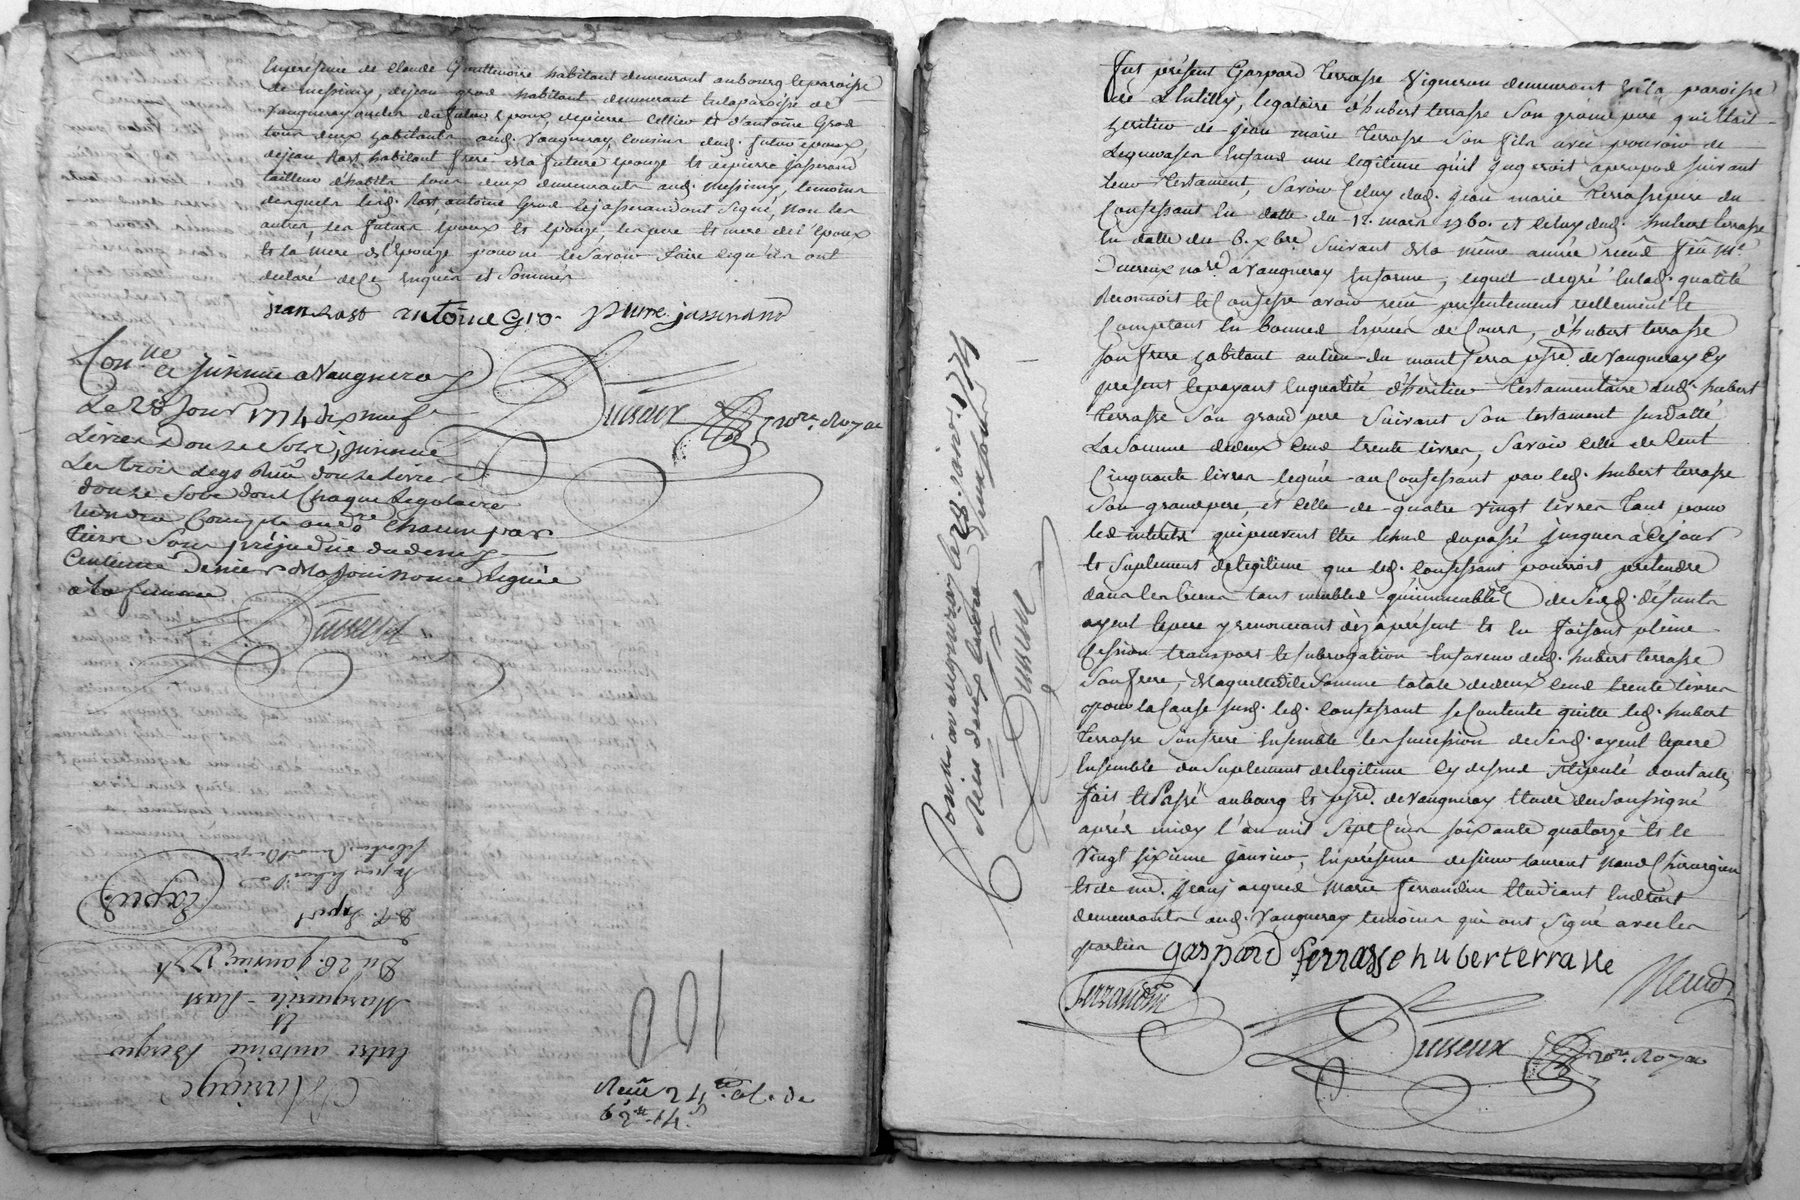 En présence de Claude Gouttenoire habitant demeurant au bourg & paroisse
de messimy, dejean grod habitant demeurant en la paroisse de
Vaugneray oncles du futur Epoux de pierre Cellier & d'antoine Grod
tous deux habitants aud. Vaugneray, Cousins dud. futur epoux
de jean Rast habitant frere de la future épouze & de pierre Jasserand
tailleur d'habits tous deux demeurants aud. Messimy, temoins
desquels lesd. Rast, antoine Grod & jasserand ont signé, Non les
autres, les futurs Epoux & épouze, les pere & mere de l'époux
& la mere de l'Epouze pour ne le savoir faire ce qu'ils ont
declaré de ce Enquis et Sommés
jean Rast antoine Gro pierre jasserand
Con.lle & Insinué a Vaugneray
Le 28 Janv. 1774 dix neuf
Livres Douze Sols, Insinué
Les trois legs Reçu douze Livres
douze Sols dont Chaque Legataire
tiendra Compte au d.
tiers Sans préjudice du
Centieme Denier de la Jouissance Leguée
a la femme
Ducreux no.re Royal
Ducreux
Mariage
Entre antoine Berger
Et
Marguerite Rast
Du 26. janvier 1774
Expéd.
100
Reçu
Controllé a vaugneray le 28. janv. 1774
Reçu deux livres
Ducreux
Fut présent Gaspard terrasse Vigneron demeurant en la paroisse
de Chutilly, legataire d'hubert terrasse Son grand pere qui étoit
heritier de jean marie terrasse Son fils avec pouvoir de
Leguer a ses Enfans une legitime qu'il jugeroit apropos suivant
leur testament, Savoir Celuy dud. jean marie terrasse pere du
Confessant En datte du 12. mars 1760. et celuy dud. hubert terrasse
En datte du 6. xbre Suivant de la même année reçus feu M.e
Ducreux no.re a Vaugneray En forme, lequel degré Enlad. qualité
Reconnoit & Confesse avoir reçu présentement reellement &
Comptant En bonnes Especes de Cours, d'hubert terrasse
Son frere habitant au lieu du mont Ferra psse. de Vaugneray Cy
present & payant En qualité d'héritier testamentaire dud. hubert
terrasse Son grand pere Suivant Son testament susdatté
La Somme de deux Cens trente livres, Savoir celle de Cent
Cinquante livres leguée au Confessant par led. hubert terrasse
Son grand pere, et Celle de quatre vingt livres tant pour
les intérêts qui peuvent être échus du passé jusques a Ce jour
& Suplement de legitime que led. Confessant pourroit pretendre
dans les biens tant meubles qu'immeubles de Sesd. défunts
ayeul & pere y renonceant dèz àprésent & En faisant pleine
Cession transport & subrogation En faveur dud. hubert terrasse
Son frere, de laquelle dite Somme totale de deux Cens trente livres
pour la Cause susd. led. Confessant se Contente quitte led. hubert
terrasse Son frere Ensemble les succession de Sesd. ayeul & pere
Ensemble du Suplement de legitime Cy dessus Stipulé dont acte,
fait & Passé au bourg & psse. de Vaugneray Etude du Soussigné
après midy l'an mil Sept Cens soixante quatorze & le
Vingt Sixieme janvier, En présence de sieur laurent Neud Chirurgien
& de me. Jean jacques Marie ferrandin Etudiant En droit
demeurants aud. Vaugneray temoins qui ont Signé avec les
parties gaspard Terrasse huberterrasse
Ferrandin
Neud
Ducreux no.re Royal